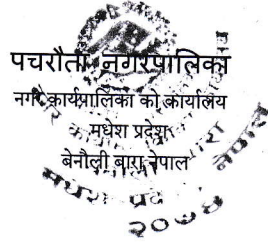 पचरौता नगरपालिका
नगर कार्यपालिका को कार्यालय
मधेश प्रदेश
बेनौली बारा नेपाल
नेपाल
२०७४